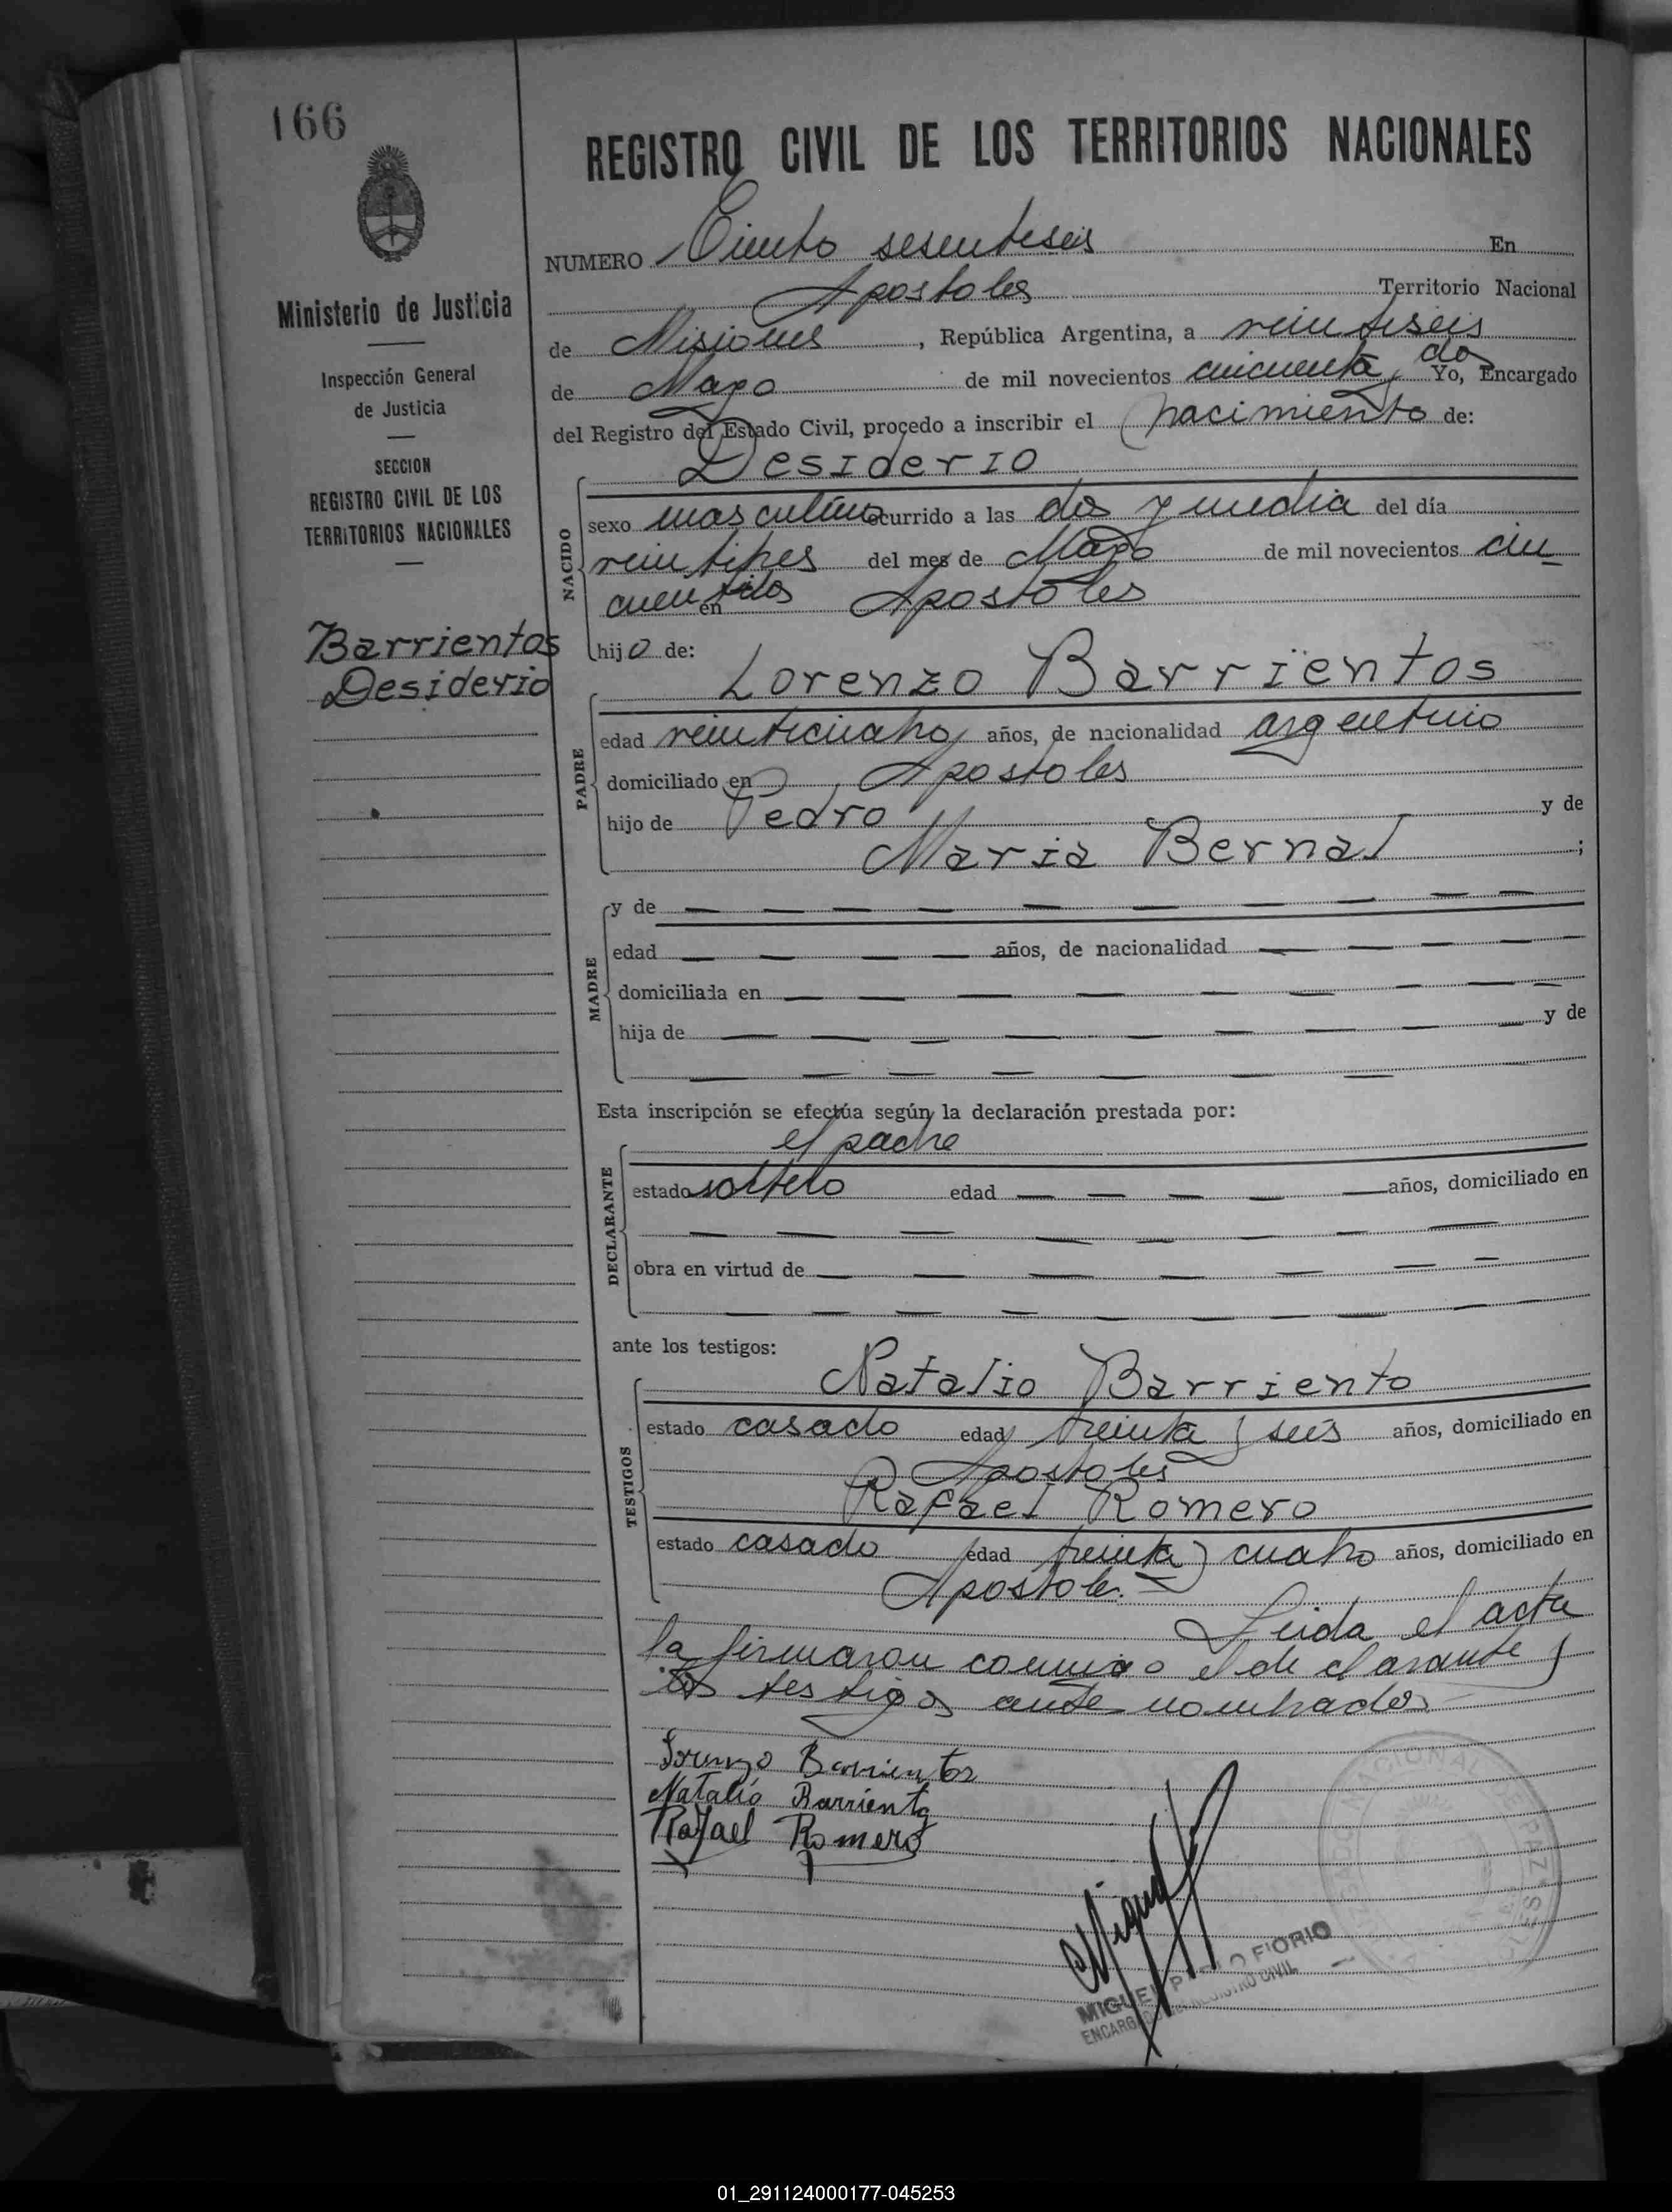 166
REGISTRO CIVIL DE LOS TERRITORIOS NACIONALES
NUMERO Ciento sesentiseis En
Apostoles Territorio Nacional
de Misiones, República Argentina, a veintiseis
de Mayo de mil novecientos cincuenta y dos Yo, Encargado
del Registro del Estado Civil, procedo a inscribir el nacimiento de:
Desiderio
sexo masculino ocurrido a las dos y media del día
veintitres del mes de Mayo de mil novecientos cin
cuentidos en Apostoles
hijo de:
Lorenzo Barrientos
edad veinticuatro años, de nacionalidad argentino
domiciliado en Apostoles
hijo de Pedro y de
Maria Bernal ;
y de
edad años, de nacionalidad
domiciliada en
hija de y de
Esta inscripción se efectúa según la declaración prestada por:
el padre
estado soltero edad años, domiciliado en
obra en virtud de
ante los testigos:
Natalio Barriento
estado casado edad treinta y seis años, domiciliado en
Apostoles
Rafael Romero
estado casado edad treinta y cuatro años, domiciliado en
Apostoles.
Leida el acta
la firmaron conmigo el declarante y
los testigos ante nombrados
Lorenzo Barrientos
Natalio Barriento
Rafael Romero
Miguel
MIGUEL PABLO FIORIO
ENCARGADO DEL REGISTRO CIVIL
NACIONAL DE PAZ
Ministerio de Justicia
Inspección General
de Justicia
SECCION
REGISTRO CIVIL DE LOS
TERRITORIOS NACIONALES
Barrientos
Desiderio
NACIDO
PADRE
MADRE
DECLARANTE
TESTIGOS
01_291124000177-045253